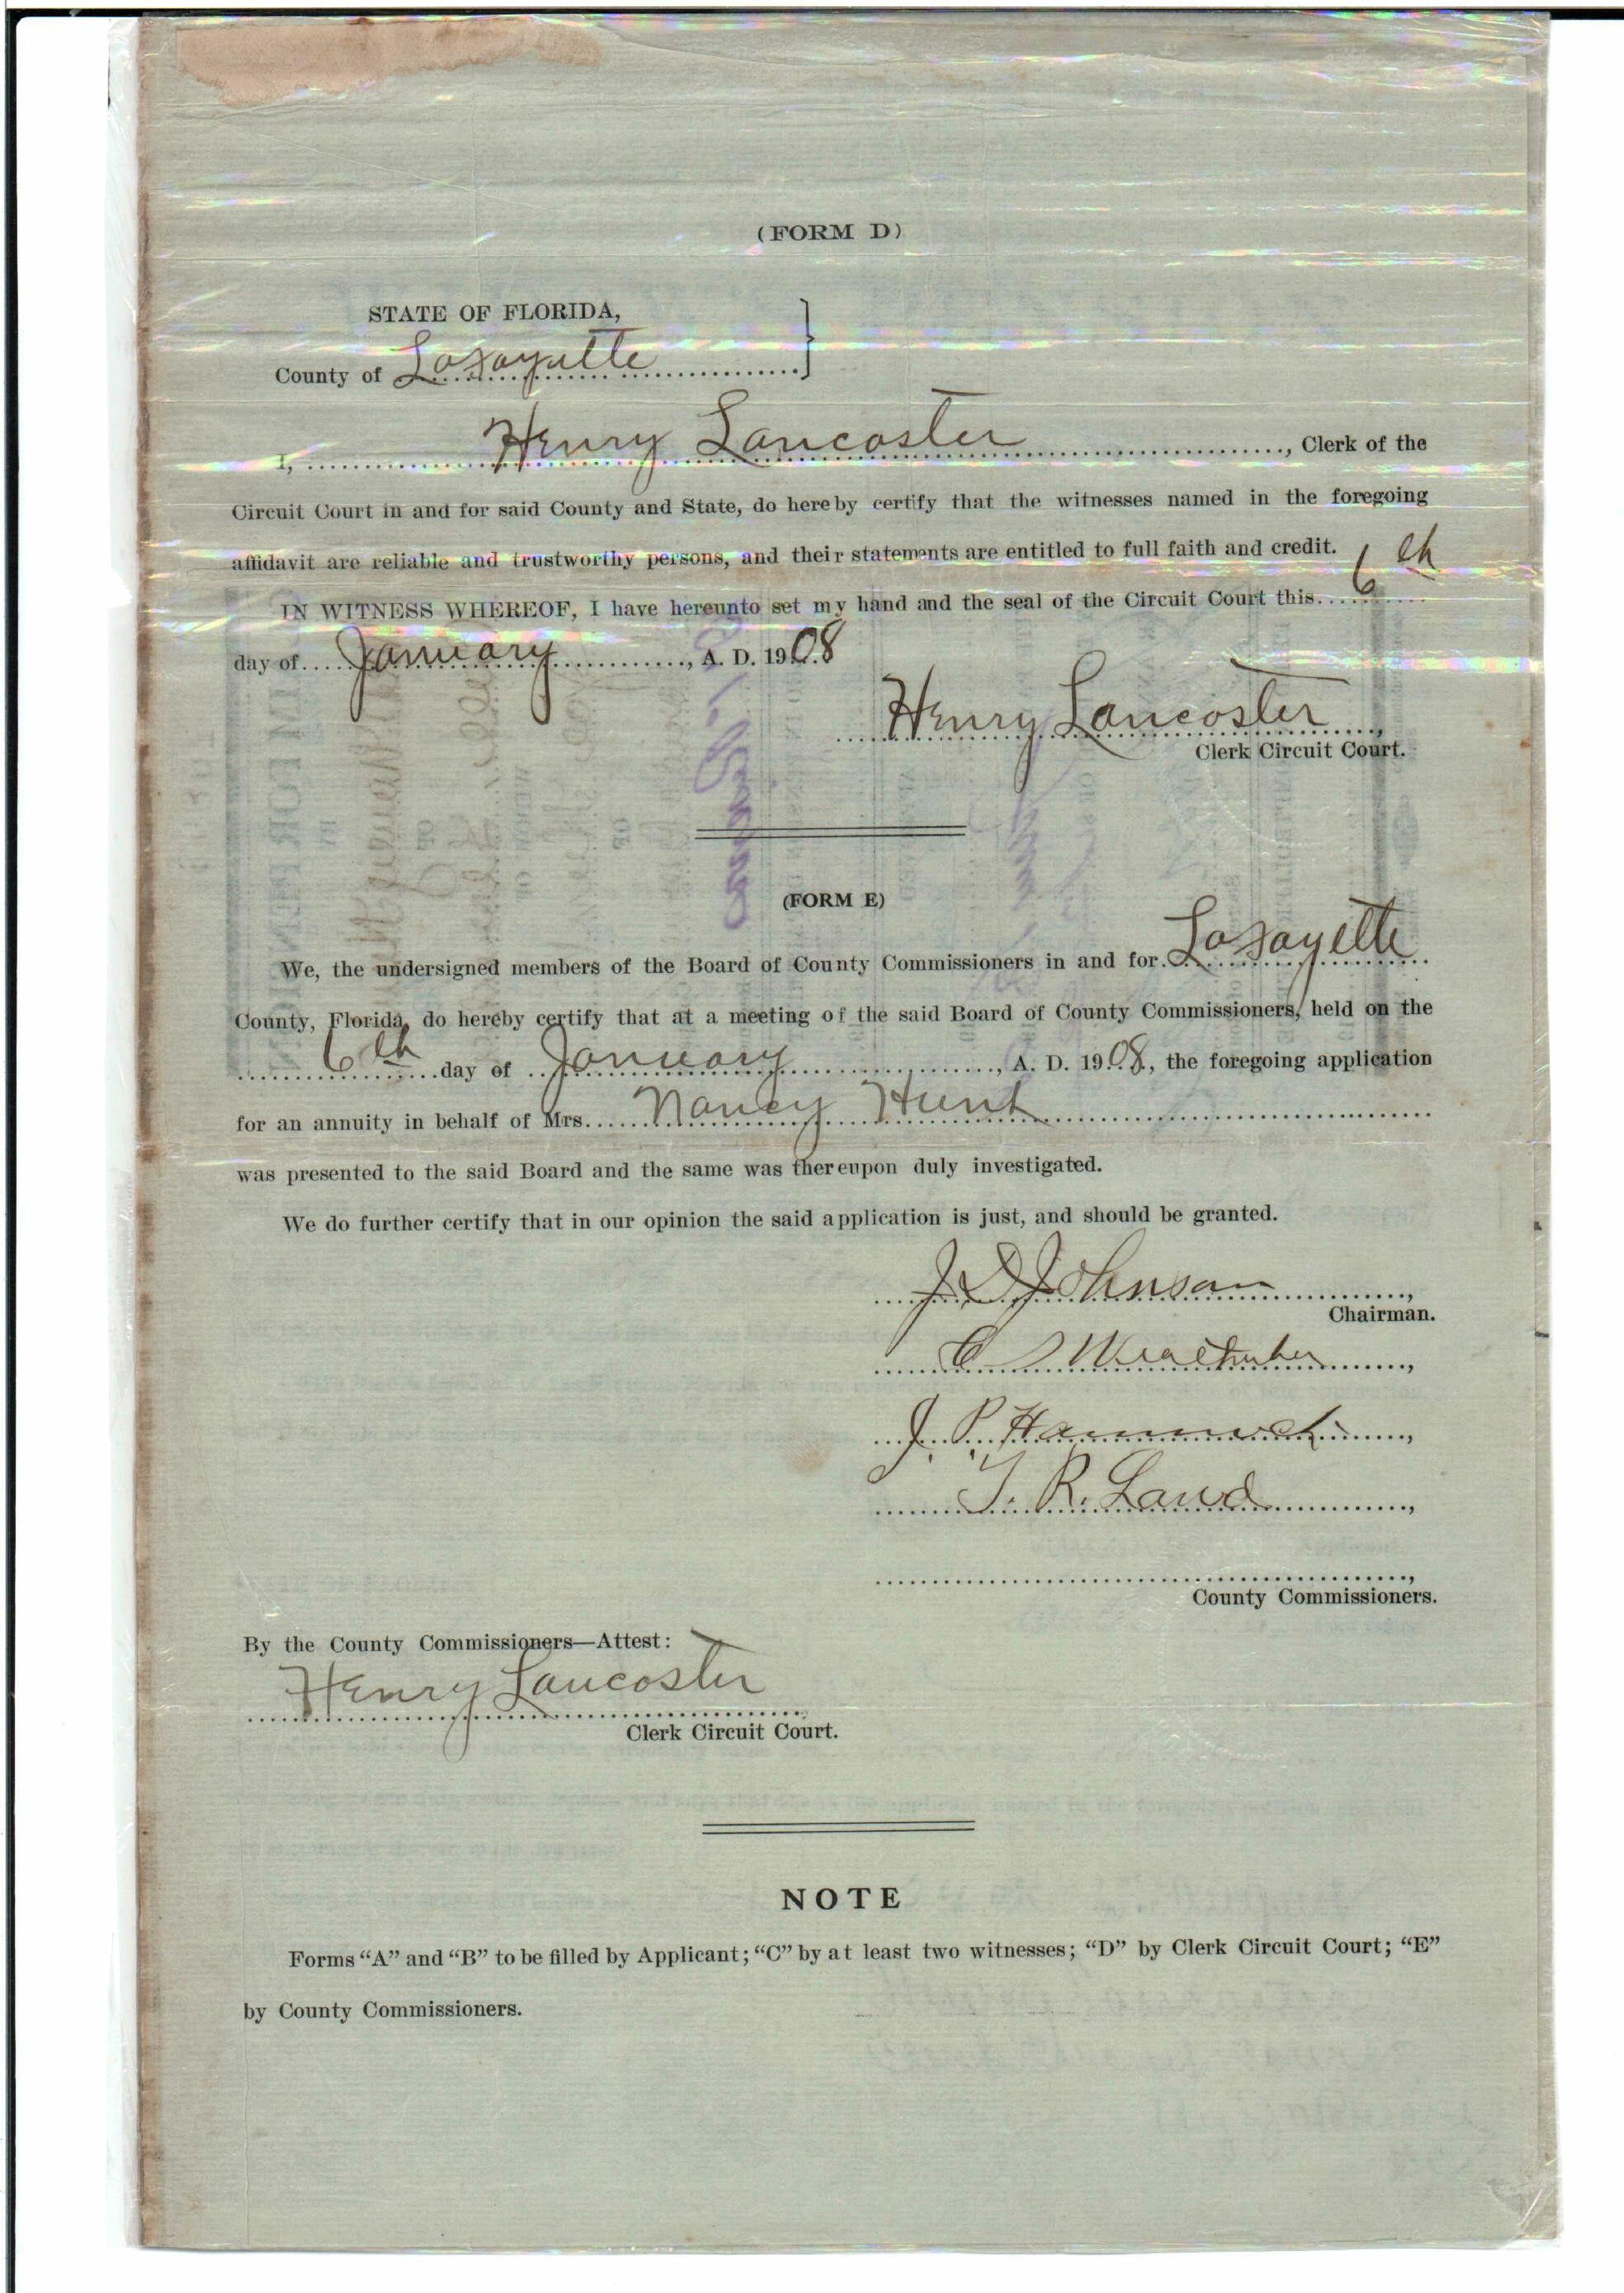 (FORM D)
STATE OF FLORIDA,
County of Lafayette
I, Henry Lancaster, Clerk of the
Circuit Court in and for said County and State, do hereby certify that the witnesses named in the foregoing
affidavit are reliable and trustworthy persons, and their statements are entitled to full faith and credit.
IN WITNESS WHEREOF, I have hereunto set my hand and the seal of the Circuit Court this 6th
day of January, A. D. 1908
Henry Lancaster,
Clerk Circuit Court.
(FORM E)
We, the undersigned members of the Board of County Commissioners in and for Lafayette
County, Florida, do hereby certify that at a meeting of the said Board of County Commissioners, held on the
6th day of January, A. D. 1908, the foregoing application
for an annuity in behalf of Mrs. Nancy Hunt
was presented to the said Board and the same was thereupon duly investigated.
We do further certify that in our opinion the said application is just, and should be granted.
J D Johnson,
Chairman.
J. P. Hammock,
T. R. Land,
County Commissioners.
By the County Commissioners—Attest:
Henry Lancaster
Clerk Circuit Court.
NOTE
Forms "A" and "B" to be filled by Applicant; "C" by at least two witnesses; "D" by Clerk Circuit Court; "E"
by County Commissioners.